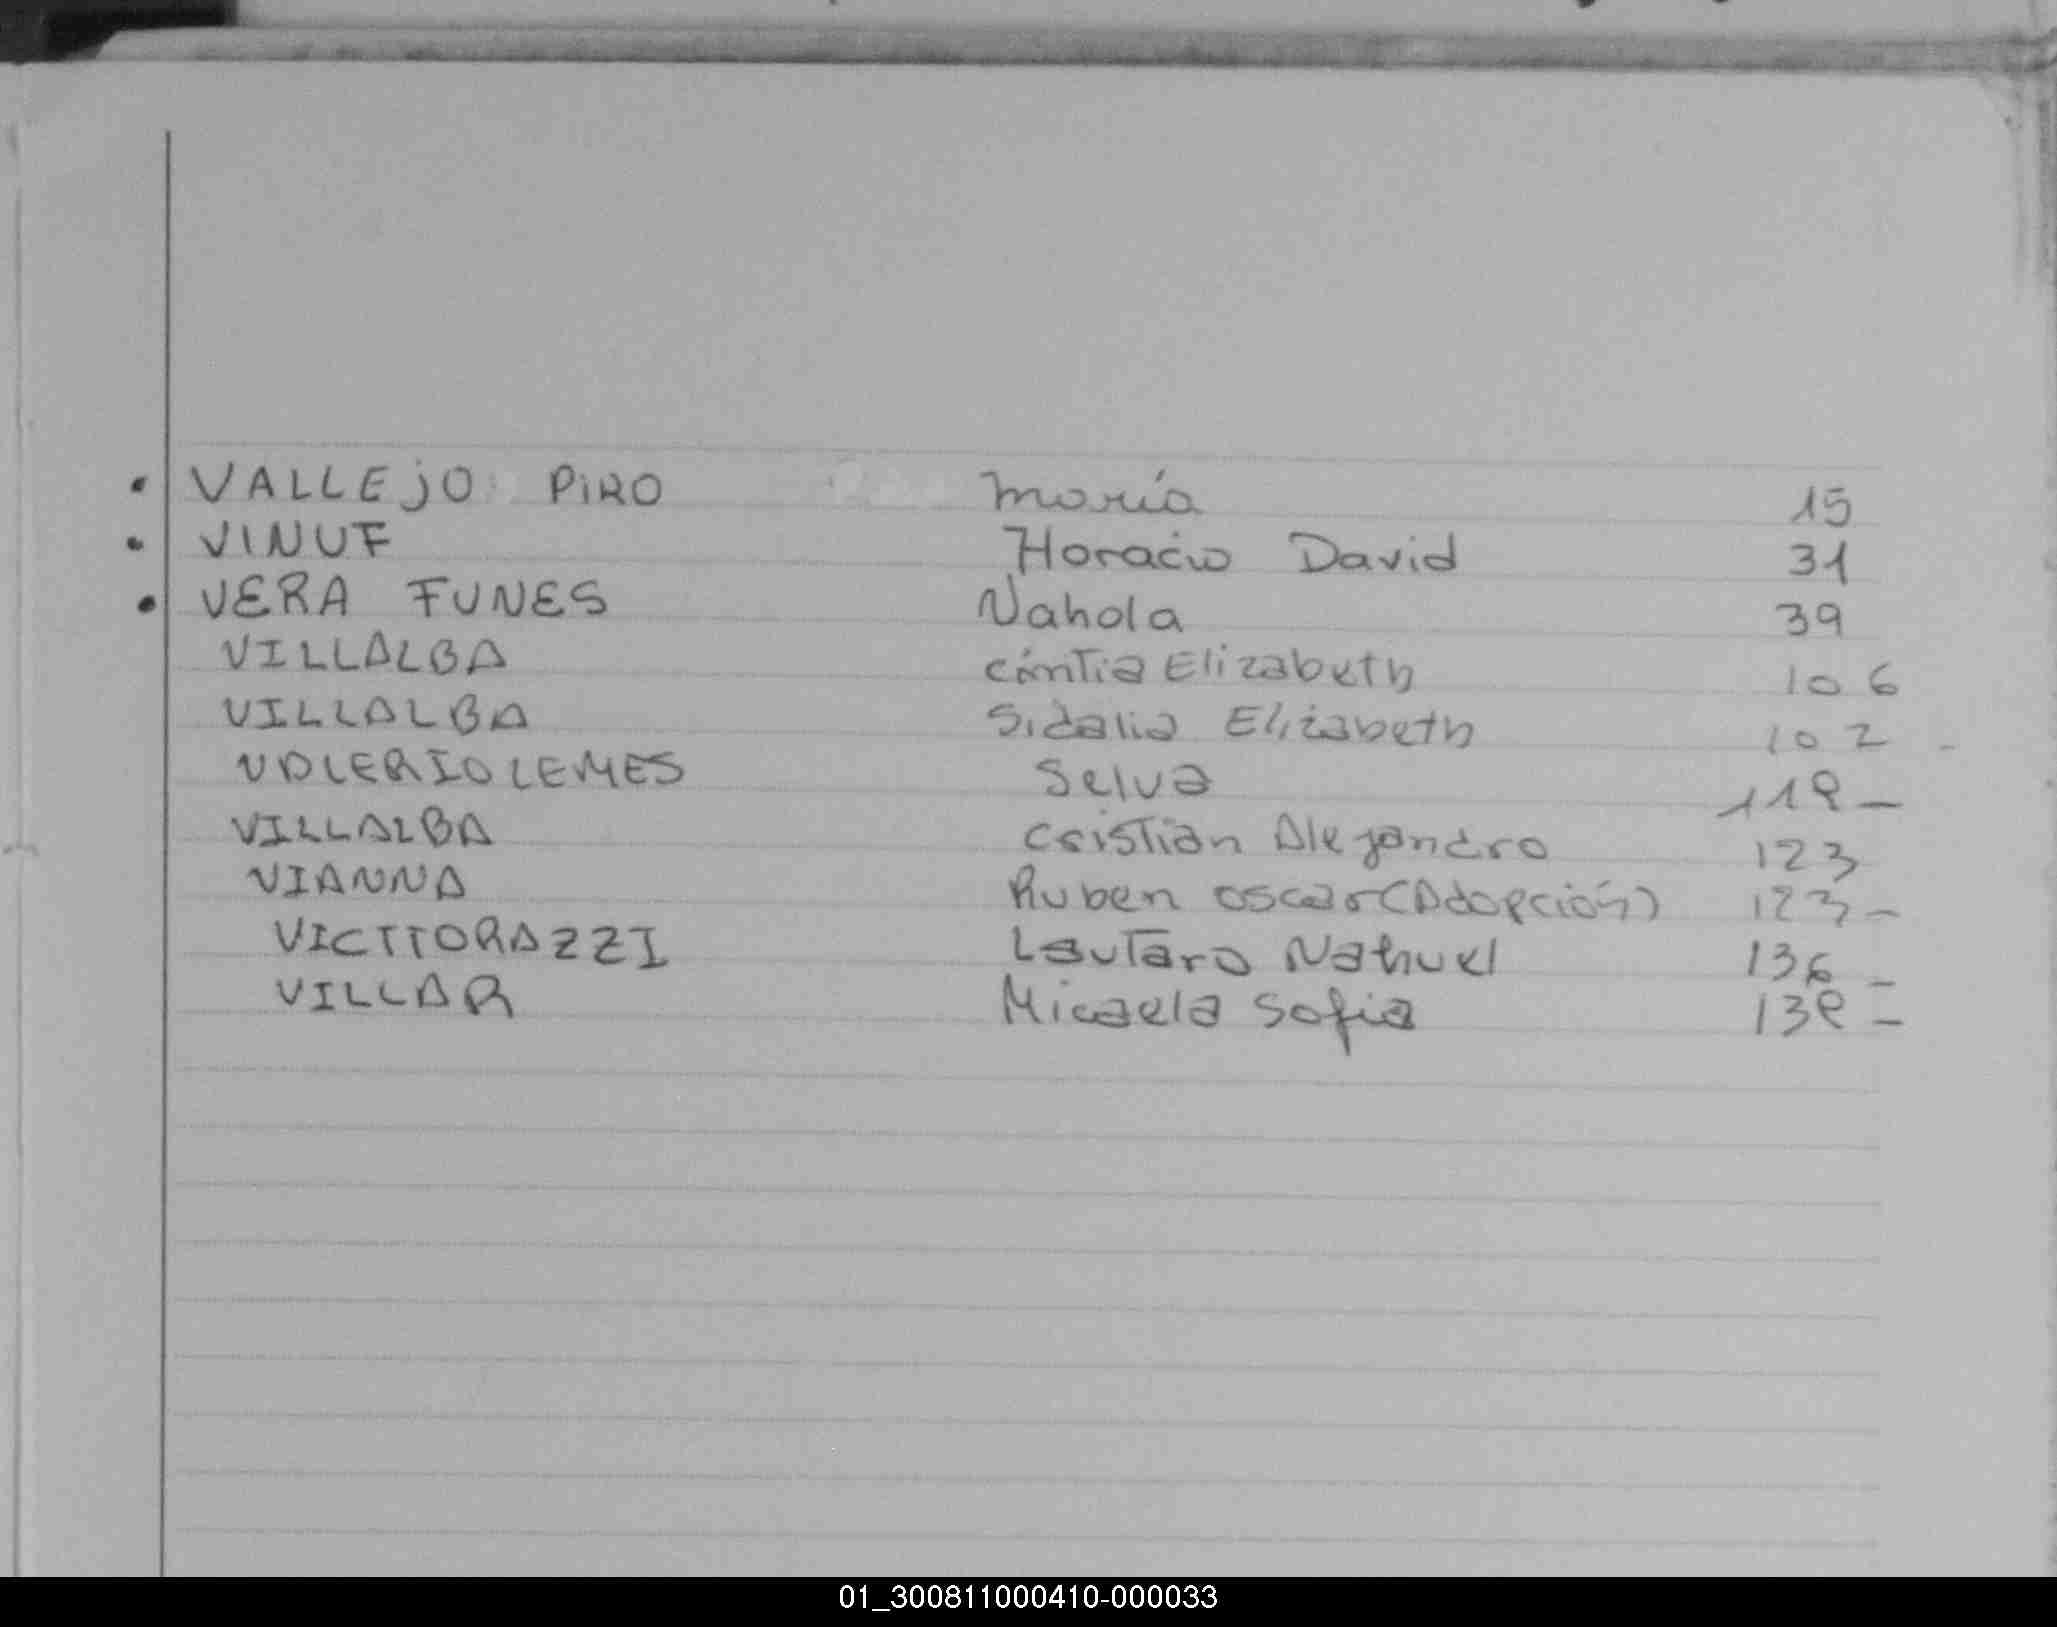 • VALLEJO PIRO María 15
• VINUF Horacio David 31
• VERA FUNES Nahola 39
VILLALBA Cíntia Elizabeth 106
VILLALBA Sidalia Elizabeth 102 -
VALERIO LEMES Selva 118 -
VILLALBA Cristian Alejandro 123
VIANNA Ruben Oscar (Adopción) 123 -
VICTTORAZZI Lautaro Nahuel 136 -
VILLAR Micaela Sofia 138 -
01_300811000410-000033